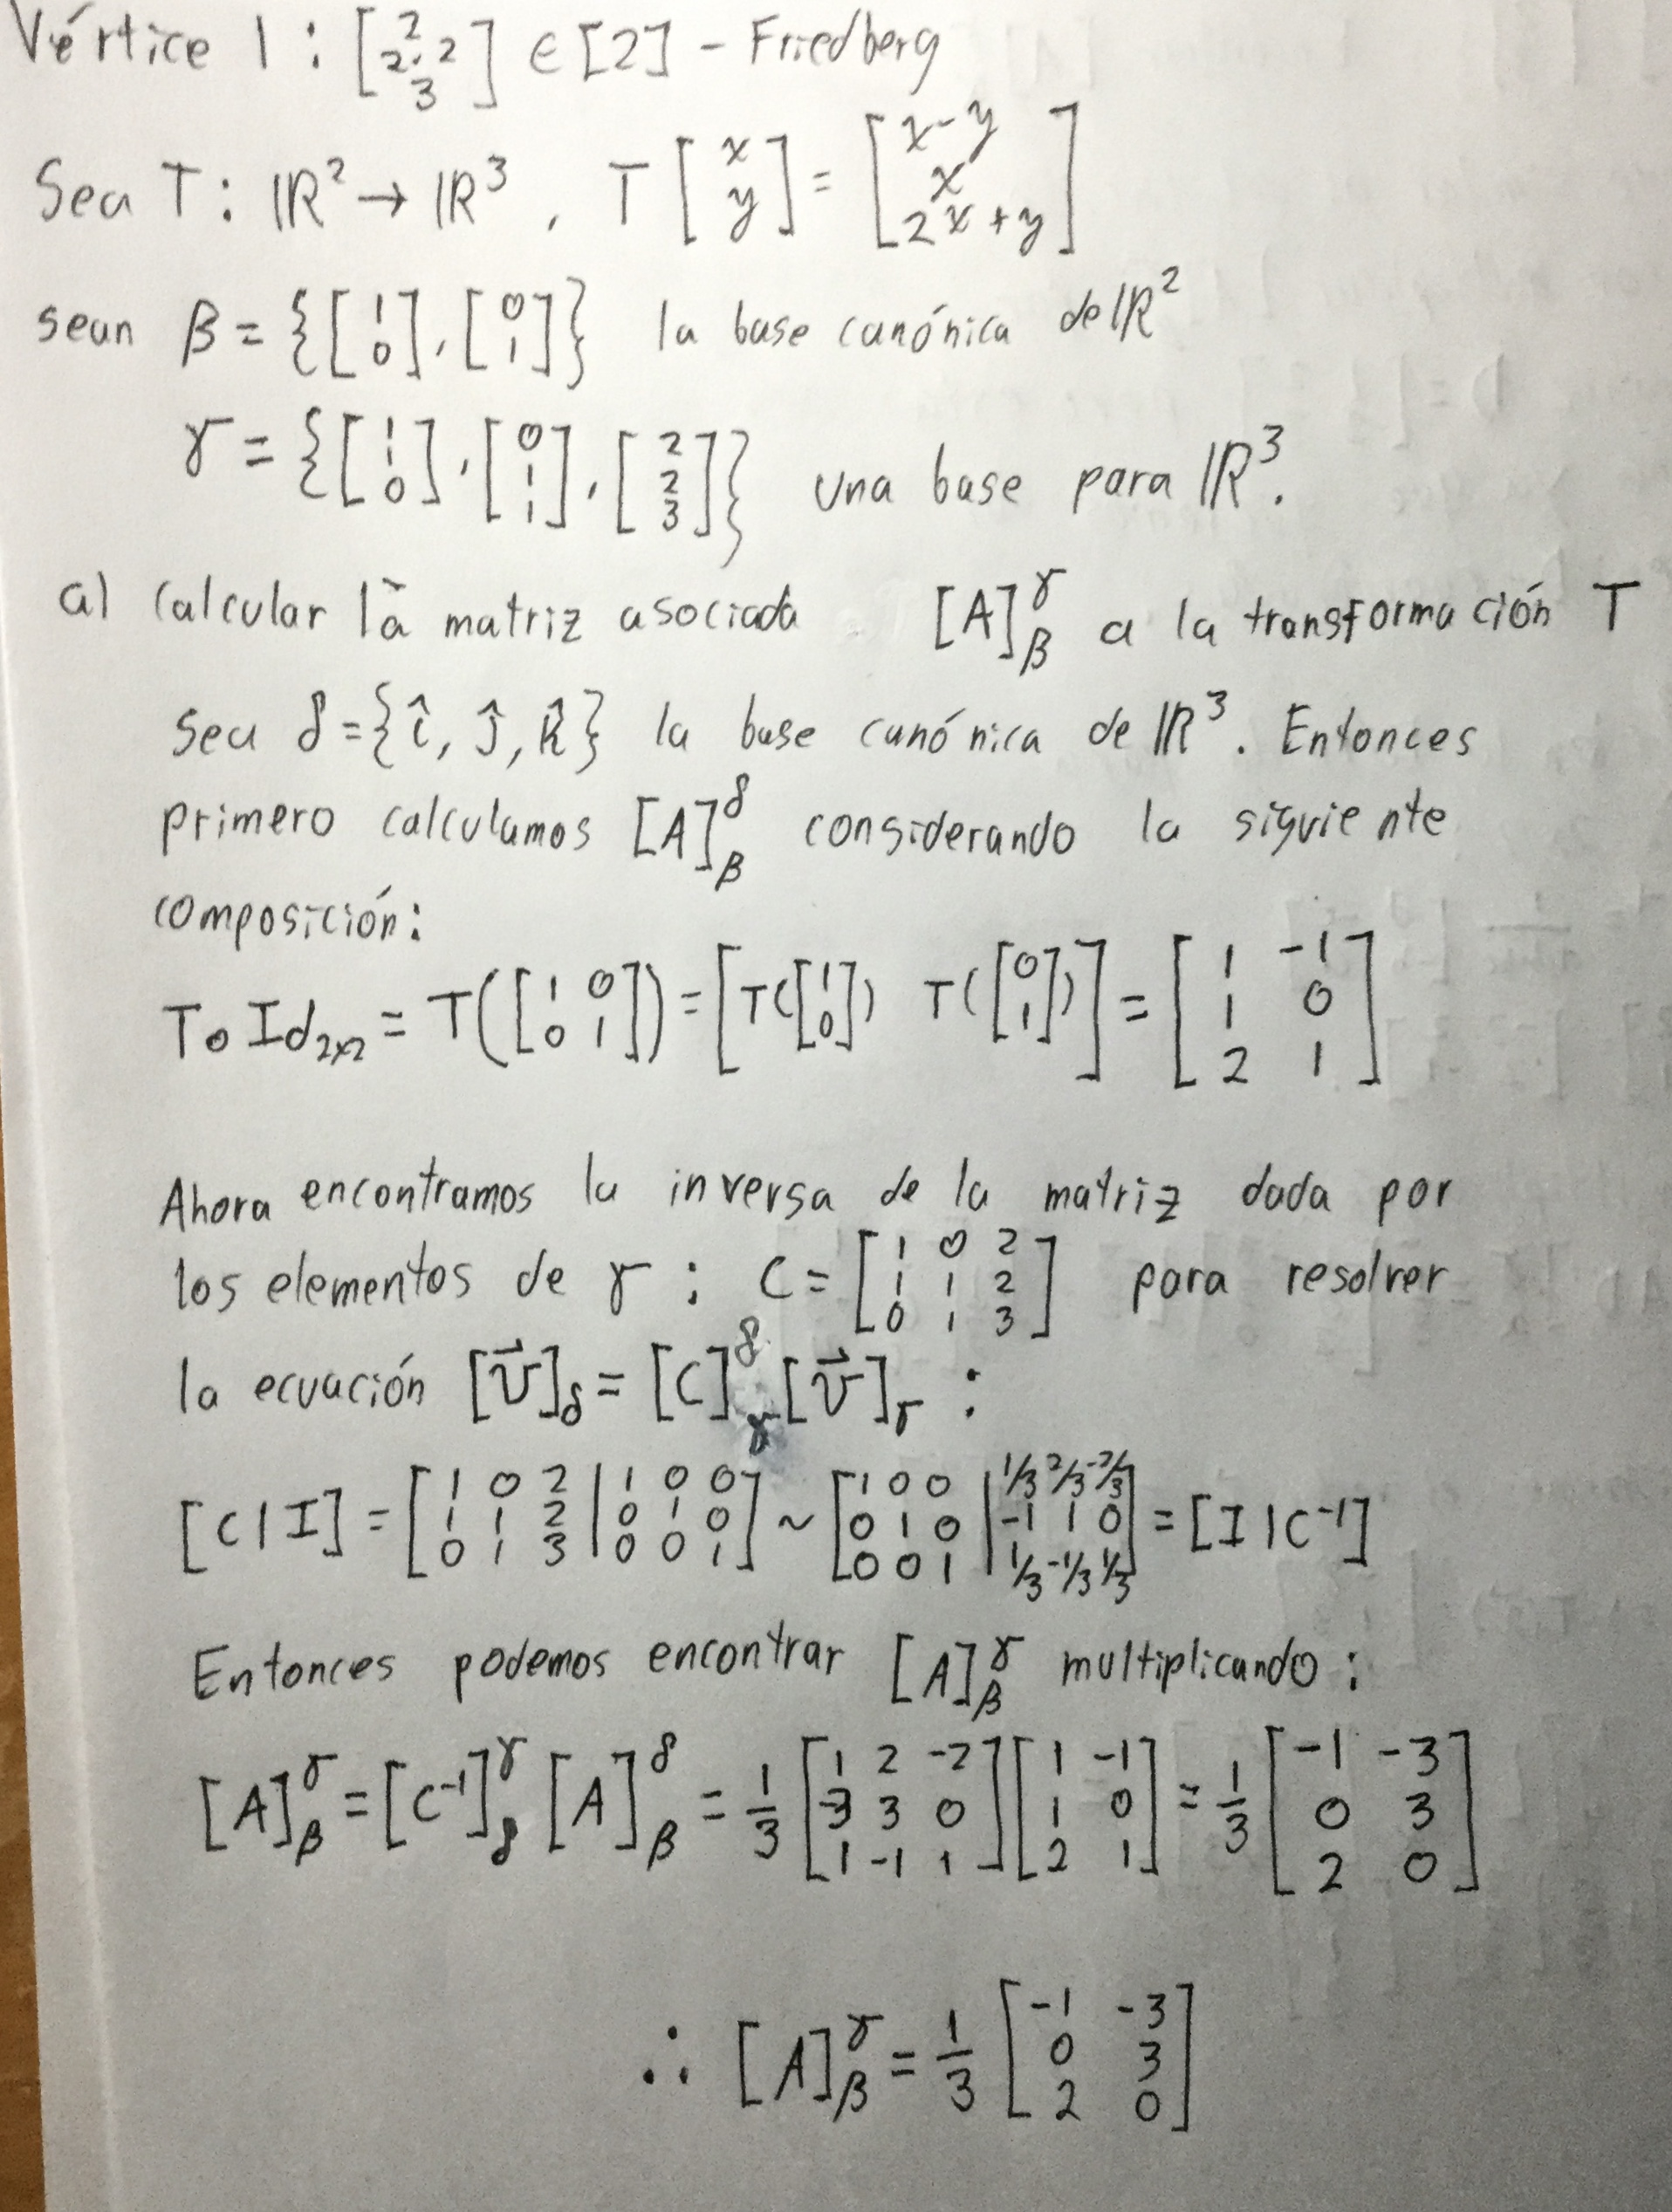 Vértice 1 : [2 2.2 3] ∈ [2] - Friedberg
Sea T : ℝ² → ℝ³ , T [x y] = [x-y x 2x+y]
sean β = {[1 0], [0 1]} la base canónica de ℝ²
γ = {[1 1 0], [0 1 1], [2 2 3]} una base para ℝ³.
a) Calcular la matriz asociada [A]_β^γ a la transformación T
Sea δ = {î, ĵ, k̂} la base canónica de ℝ³. Entonces
primero calculamos [A]_β^δ considerando la siguiente
composición:
T∘Id_2×2 = T([1 0; 0 1]) = [T([1 0]) T([0 1])] = [1 -1; 1 0; 2 1]
Ahora encontramos la inversa de la matriz dada por
los elementos de γ : C = [1 0 2; 1 1 2; 0 1 3] para resolver
la ecuación [v⃗]_δ = [C]_γ^δ [v⃗]_γ :
[C|I] = [1 0 2 | 1 0 0; 1 1 2 | 0 1 0; 0 1 3 | 0 0 1] ~ [1 0 0 | 1/3 2/3 -2/3; 0 1 0 | -1 1 0; 0 0 1 | 1/3 -1/3 1/3] = [I|C⁻¹]
Entonces podemos encontrar [A]_β^γ multiplicando :
[A]_β^γ = [C⁻¹]_δ^γ [A]_β^δ = 1/3 [1 2 -2; -3 3 0; 1 -1 1] [1 -1; 1 0; 2 1] = 1/3 [-1 -3; 0 3; 2 0]
∴ [A]_β^γ = 1/3 [-1 -3; 0 3; 2 0]